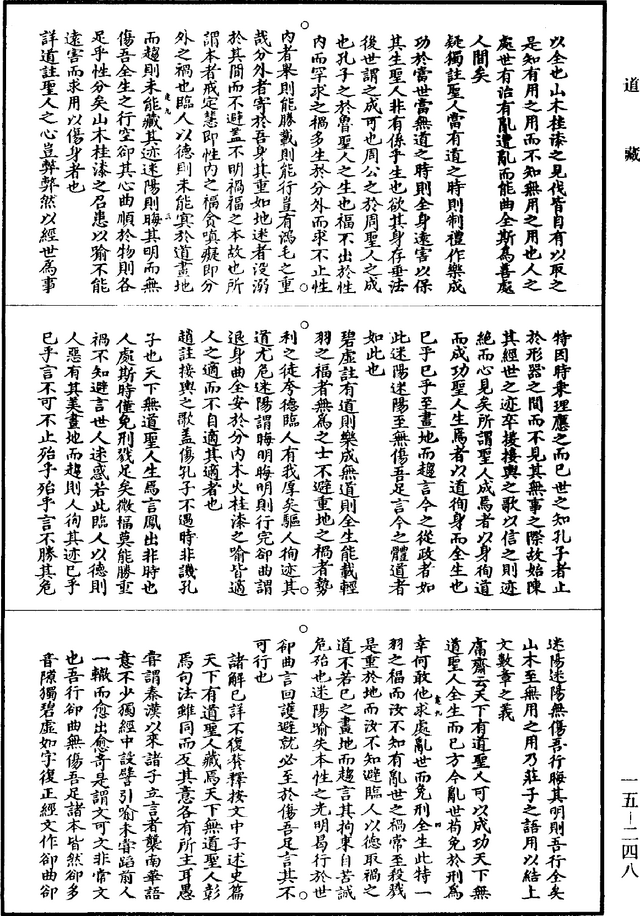 道藏
以全也山木桂漆之見伐皆自有以取之
是知有用之用而不知無用之用也人之
處世有治有亂遭亂而能曲全斯為善處
人間矣
疑獨註聖人當有道之時則制禮作樂成
功於當世當無道之時則全身遠害以保
其生聖人非有係乎生也欲其身存垂法
後世謂之成可也周公之於周聖人之成
也孔子之於魯聖人之生也福不出於性
內而罕求之禍多生於分外而求不止性
內者舉則能勝載則能行豈有鴻毛之重
哉分外者寄於吾身其重如地迷者沒溺
於其間而不避蓋不明禍福之本故也所
謂本者戒定慧即性內之福貪嗔癡即分
外之禍也臨人以德則未能冥於道畫地
而趨則未能藏其迹迷陽則晦其明而無
傷吾全生之行空卻其心曲順於物則各
足乎性分矣山木桂漆之召患以喻不能
遠害而求用以傷身者也
詳道註聖人之心豈弊弊然以經世為事
特因時乘理應之而已世之知孔子者止
於形器之間而不見其無事之際故始陳
其經世之迹卒接接輿之歌以信之則迹
絕而心見矣所謂聖人成焉者以身徇道
而成功聖人生焉者以道徇身而全生也
已乎已乎至畫地而趨言今之從政者如
此迷陽迷陽至無傷吾足言今之體道者
如此也
碧虛註有道則樂成無道則全生能載輕
羽之福者無為之士不避重地之禍者勢
利之徒夸德臨人有我厚矣驅人徇迹其
道尤危迷陽謂晦明晦明則行完卻曲謂
退身曲全安於分內木火桂漆之喻皆適
人之適而不自適其適者也
趙註接輿之歌蓋傷孔子不遇時非譏孔
子也天下無道聖人生焉言鳳出非時也
人處斯時僅免刑戮足矣微福莫能勝重
禍不知避言世人迷惑若此臨人以德則
人惡有其美畫地而趨則人徇其迹已乎
已乎言不可不止殆乎殆乎言不勝其危
迷陽迷陽無傷吾行晦其明則吾行全矣
山木至無用之用乃莊子之語用以結上
文數章之義
庸齋云天下有道聖人可以成功天下無
道聖人全生而已方今亂世苟免於刑為
幸何敢他求處亂世而免刑全生此特一
羽之福而汝不知有亂世之禍常至殺戮
是重於地而汝不知避臨人以德取禍之
道不若已之畫地而趨言其拘束自苦誠
危殆也迷陽喻失本性之光明曷行於世
卻曲言回護避就必至於傷吾足言其不
可行也
諸解已詳不復贅釋按文中子述史篇
天下有道聖人藏焉天下無道聖人彰
焉句法雖同而反其意各有所主耳愚
嘗謂秦漢以來諸子立言者襲南華語
意不少獨經中設譬引喻未嘗蹈前人
一轍而愈出愈奇是謂文可文非常文
也吾行卻曲無傷吾足諸本皆然卻多
音隙獨碧虛如字復正經文作卻曲卻
一五-二四八